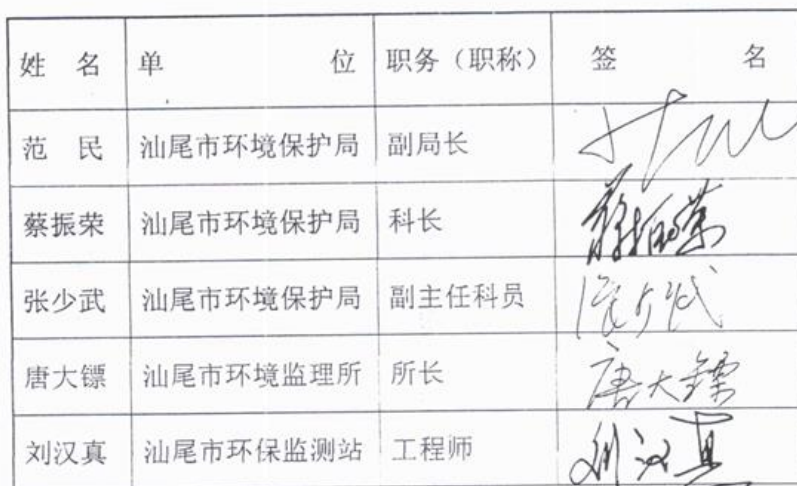 姓 名 单 位 职务（职称） 签 名
范 民 汕尾市环境保护局 副局长
蔡振荣 汕尾市环境保护局 科长 蔡振荣
张少武 汕尾市环境保护局 副主任科员 张少武
唐大镖 汕尾市环境监理所 所长 唐大镖
刘汉真 汕尾市环保监测站 工程师 刘汉真